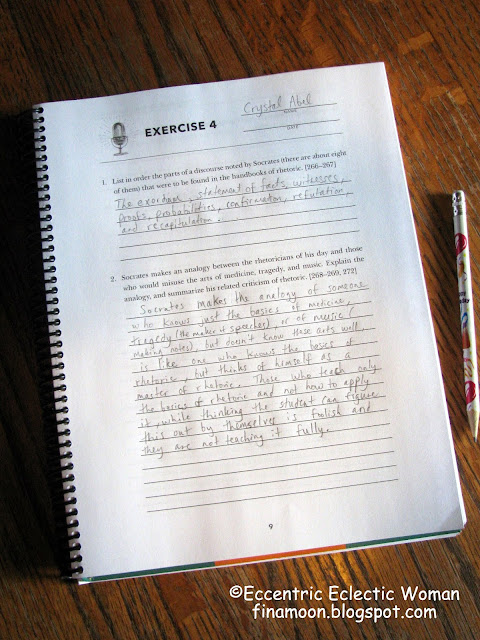 Crystal Abel
NAME
DATE
EXERCISE 4
1. List in order the parts of a discourse noted by Socrates (there are about eight
of them) that were to be found in the handbooks of rhetoric. [266–267]
The exordium, statement of facts, witnesses,
proofs, probabilities, confirmation, refutation,
and recapitulation.
2. Socrates makes an analogy between the rhetoricians of his day and those
who would misuse the arts of medicine, tragedy, and music. Explain the
analogy, and summarize his related criticism of rhetoric. [268–269, 272]
Socrates makes the analogy of someone
who knows just the basics of medicine,
tragedy (the maker of speeches), or of music (
making notes) but doesn't know these arts well
is like one who knows the bases of
rhetoric, but thinks of himself as a
master of rhetoric. Those who teach only
the basics of rhetoric and not how to apply
it, while thinking the student can figure
this out by themselves is foolish and
they are not teaching it fully.
9
©Eccentric Eclectic Woman
finamoon.blogspot.com